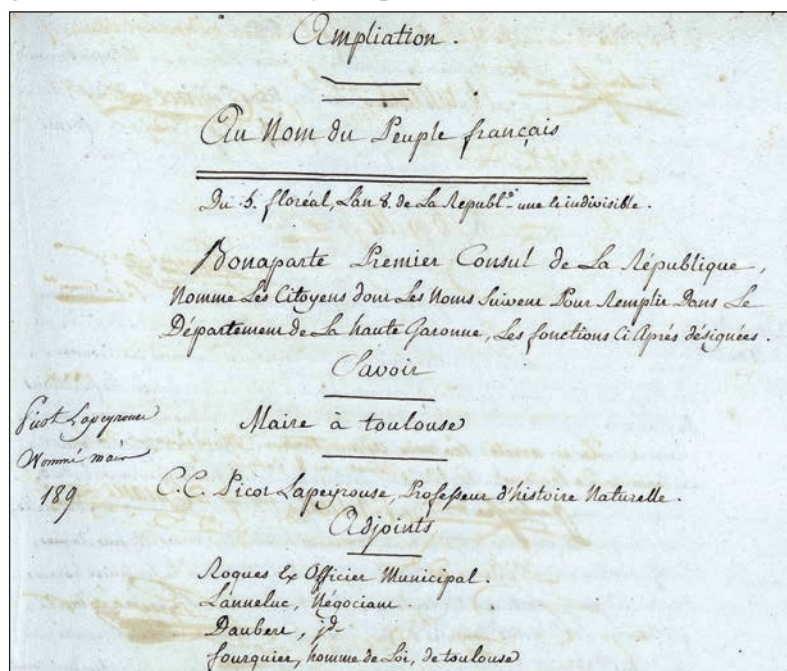 Ampliation.
Au Nom du Peuple français
Du 5. floréal, L'an 8. de La Republ.e une & indivisible.
Bonaparte Premier Consul de La République,
Nomme Les Citoyens dont Les Noms Suivent Pour Remplir Dans Le
Département de La haute Garonne, Les fonctions Ci Aprés désignées.
Savoir
Maire à toulouse
Picot Lapeyrouse
Nommé maire
189
C. C. Picot Lapeyrouse, Professeur d'histoire Naturelle.
Adjoints
Roques Ex Officier Municipal.
Lanneluc, Négociant
Daubert, jd.
fourquier, homme de Loi, de toulouse